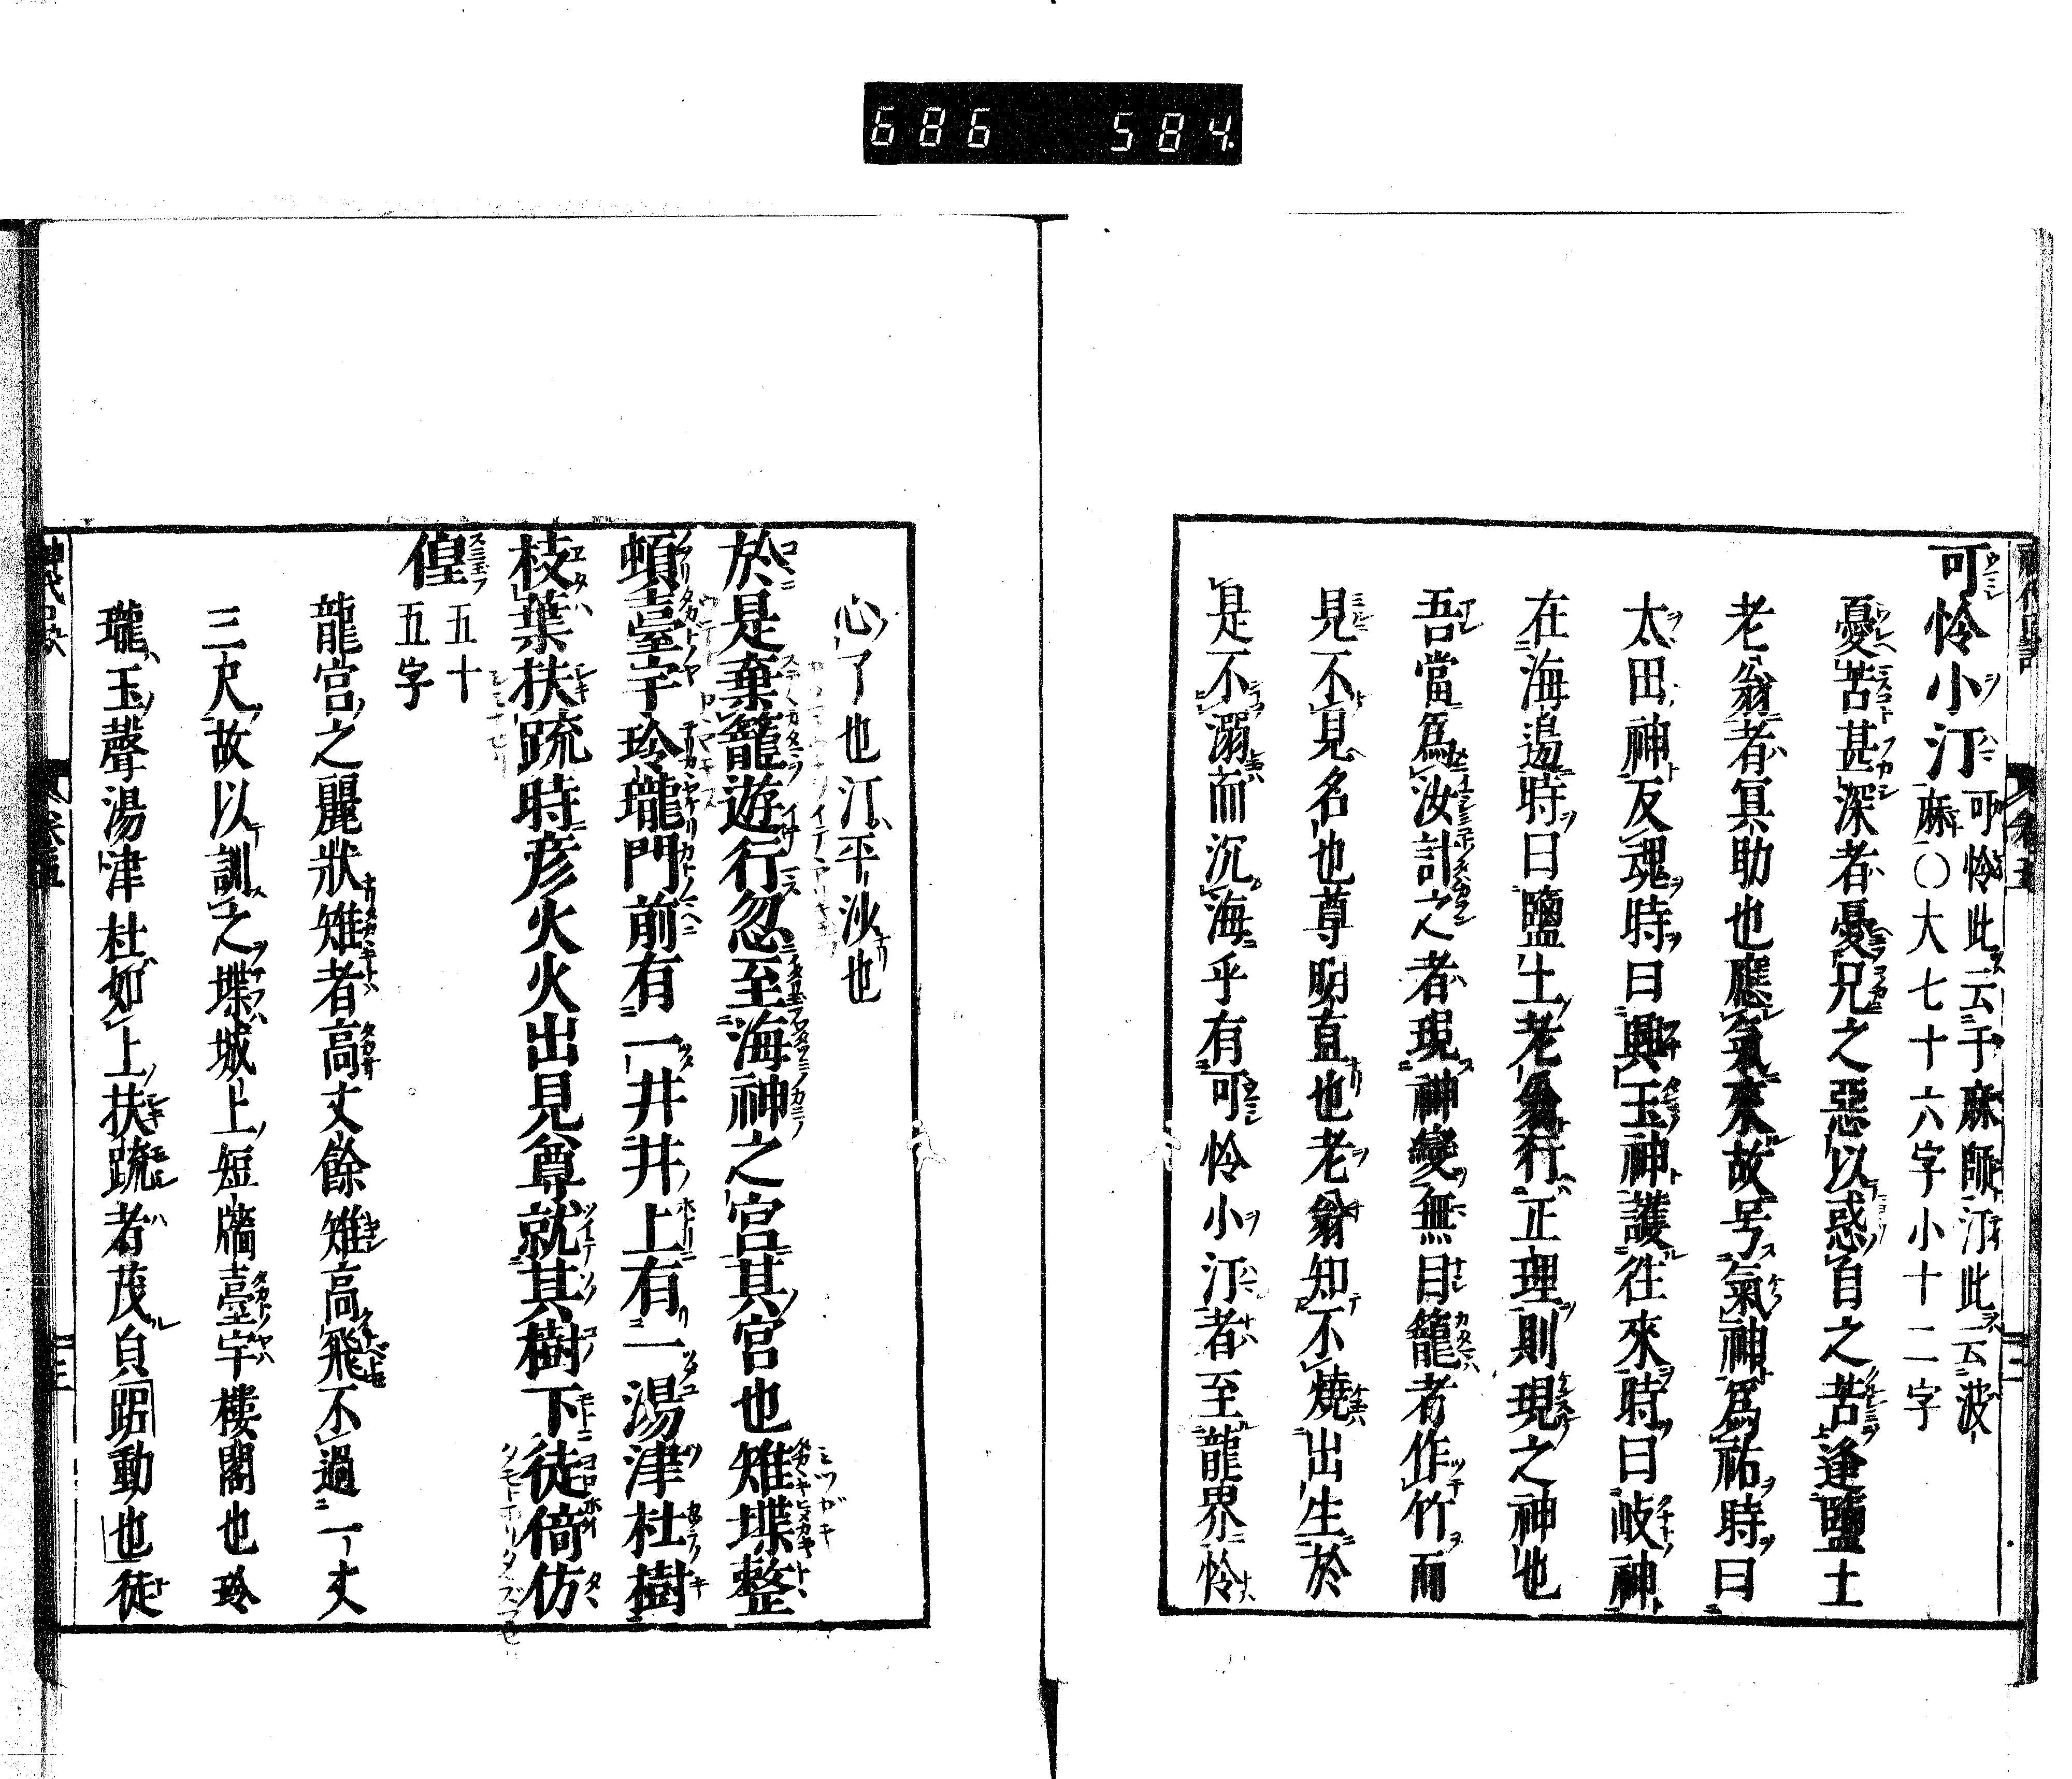 686 584.
可怜小汀可怜此云于麻師汀此云波
麻〇大七十六字小十二字
憂苦甚深者憂兄之惡以惑自之苦逢鹽土
老翁者冥助也應氣來故号氣神爲祐時曰
太田神反魂時曰興玉神護往來時曰岐神
在海邊時曰鹽土老翁行正理則現之神也
吾當爲汝計之者現神變無目籠者作竹而
見不見名也尊明直也老翁知不燒出生於
是不溺而沉海乎有可怜小汀者至龍界怜
心了也汀平沙也
於是棄籠遊行忽至海神之宮其宮也雉堞整
頓臺宇玲瓏門前有一井井上有一湯津杜樹
枝葉扶疏時彦火火出見尊就其樹下徒倚彷
徨五十
五字
龍宮之麗狀雉者高丈餘雉高飛不過一丈
三尺故以訓之堞城上短牆臺宇樓閣也玲
瓏玉聲湯津杜如上扶疏者茂貞踞動也徒